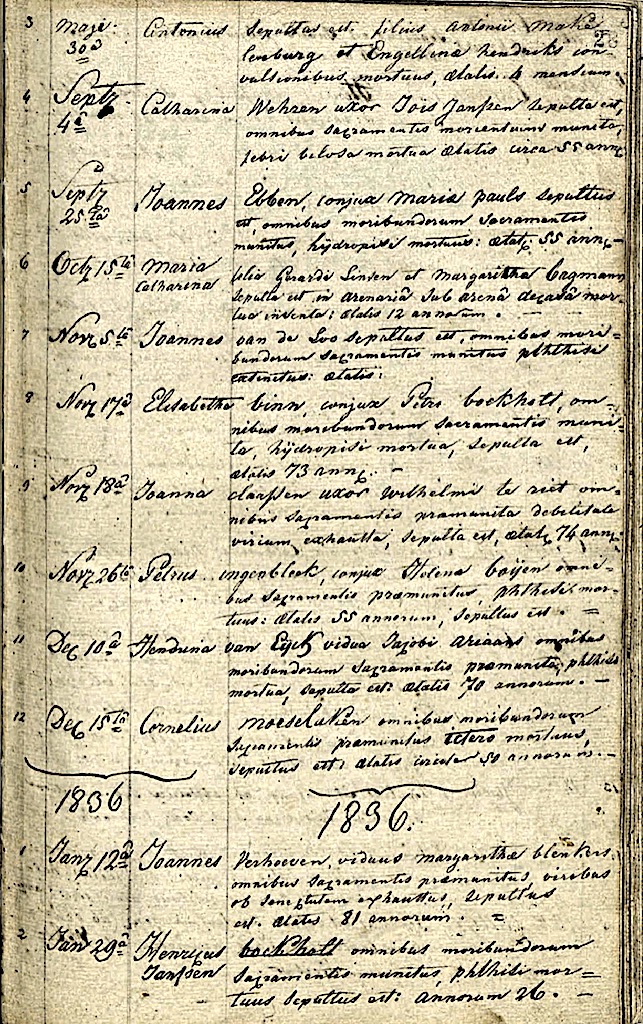 3 Maje 30ª Antonius Sepultus est filius Antonii Make
lenburg et Engellinæ Hendriks con
vulsionibus mortuus, Ætatis 4 mensium.
4 Septr 4ª Catharina Wehren uxor Jois Janssen Sepulta est,
omnibus Sacramentis morientium munita,
febri biliosa mortua Ætatis circa 55 ann,
5 Septr 25ta Joannes Ebben, conjux Mariæ pauls Sepultus
est, omnibus moribundorum Sacramentis
munitus, hijdropisi mortuus: Ætat, 55 ann,
6 Octr 15ta Maria Catharina filia Gerardi Linsen et Margaritha
Sepulta est in arenariâ Sub arenâ mor=
tua inventa: Ætatis 12 annorum.
7 Novr 5ta Joannes van de Loo Sepultus est, omnibus mori=
bundorum Sacramentis munitus phthisi
extinctus: Ætatis:
8 Novr 17ª Elisabetha binn, conjux Petri bockholt, om=
nibus moribundorum Sacramentis muni=
ta, hijdropisi mortua, Sepulta est,
Ætatis 73 ann,. -
9 Novr 18ª Joanna claassen uxor Wilhelmi te riet om=
nibus Sacramentis præmunita debilitate
virium exhausta, Sepulta est, Ætat, 74 ann,
10 Novr 26ta Petrus ingenbleek, conjux Helena boijen omni=
bus Sacramentis præmunitus, phthisi mor=
tuus: Ætatis 55 annorum, Sepultus est. =
11 Dec 10ª Hendrina van Eijck vidua Jacobi Ariaans omnibus
moribundorum Sacramentis præmunita, phthisi
mortua, Sepulta est: Ætatis 70 annorum. -
12 Dec 15ta Cornelius moeselaken omnibus moribundorum
Sacramentis præmunitus ictero mortuus,
Sepultus est: Ætatis annorum. -
1836 1836.
1 Janr 12ª Joannes Verhoeven viduus margarithæ blenkers
omnibus Sacramentis præmunitus, viribus
ob Senectutem exhaustus, Sepultus
est. Ætatis 81 annorum. =
2 Jan 29ª Henricus Janssen bockholt omnibus moribundorum
Sacramentis munitus, phthisi mor=
tuus Sepultus est: annorum 26. -